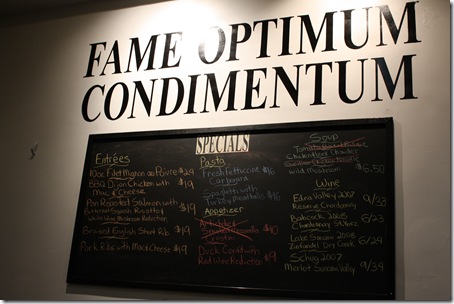 FAME OPTIMUM
CONDIMENTUM
SPECIALS
Entrées
10oz Filet Mignon au Poivre $29
BBQ Dijon Chicken with $19
Mac & Cheese
Pan Roasted Salmon with $19
Butternut Squash Risotto
White Wine Reduction
Braised English Short Rib $19
Pork Rib with Mac & Cheese $19
Pasta
Fresh Fettuccine $16
Carbonara
Spaghetti with
Turkey Meatballs $16
Appetizer
$10
Duck Confit with
Red Wine Reduction $9
Soup
Chicken Corn Chowder
Wild Mushroom $6.50
Wine
Edna Valley 2007 9/33
Reserve Chardonnay
Babcock 2008 6/23
Chardonnay
Lake Sonoma 2008 6/24
Zinfandel Dry Creek
Schug 2007 9/34
Merlot Sonoma Valley